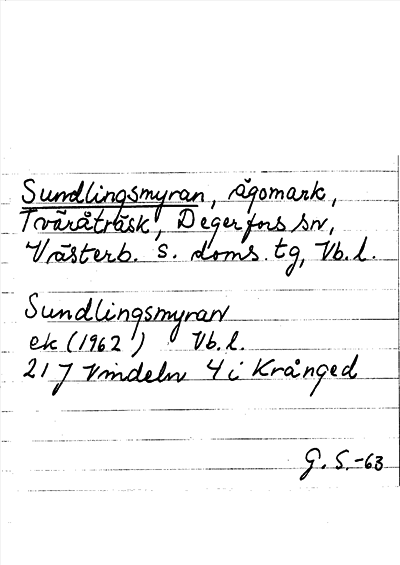 Sundlingsmyran, ägomark,
Tväråträsk, Degerfors sn,
Västerb. s. doms. tg, Vb. l.
Sundlingsmyran
ek (1962) Vb. l.
21 J Vindeln 4 i Krånged
G. S. -63